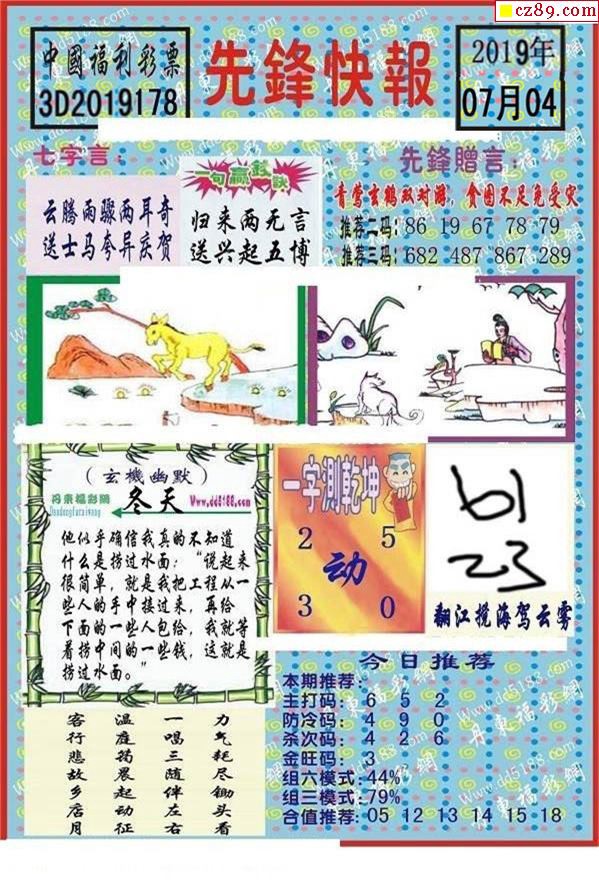 cz89.com
中國福利彩票
3D2019178
先鋒快報
2019年
07月04
七字言：
云腾雨骤两耳奇
送士马夸异庆贺
一句赢钱诀
归来两无言
送兴起五博
先鋒贈言：
青莺玄鹤双对游，食图不足免受灾
推荐二码：86 19 67 78 79
推荐三码：682 487 867 289
（玄機幽默）
丹東福彩網
Dandongfucaiwang
冬天
Www.dd5188.com
他似乎确信我真的不知道
什么是捞过水面："说起来
很简单，就是我把工程从一
些人的手中接过来，再给
下面的一些人包给，我就等
着捞中间的一些钱，这就是
捞过水面。"
一字測乾坤
2 5
动
3 0
61
23
翻江搅海驾云雾
客行悲故乡店月
温庭筠晨起动征
一唱三随伴左右
力气耗尽锄头看
今日推荐
本期推荐：
主打码：6 5 2
防冷码：4 9 0
杀次码：4 2 6
金旺码：3
组六模式：44%
组三模式：79%
合值推荐：05 12 13 14 15 18